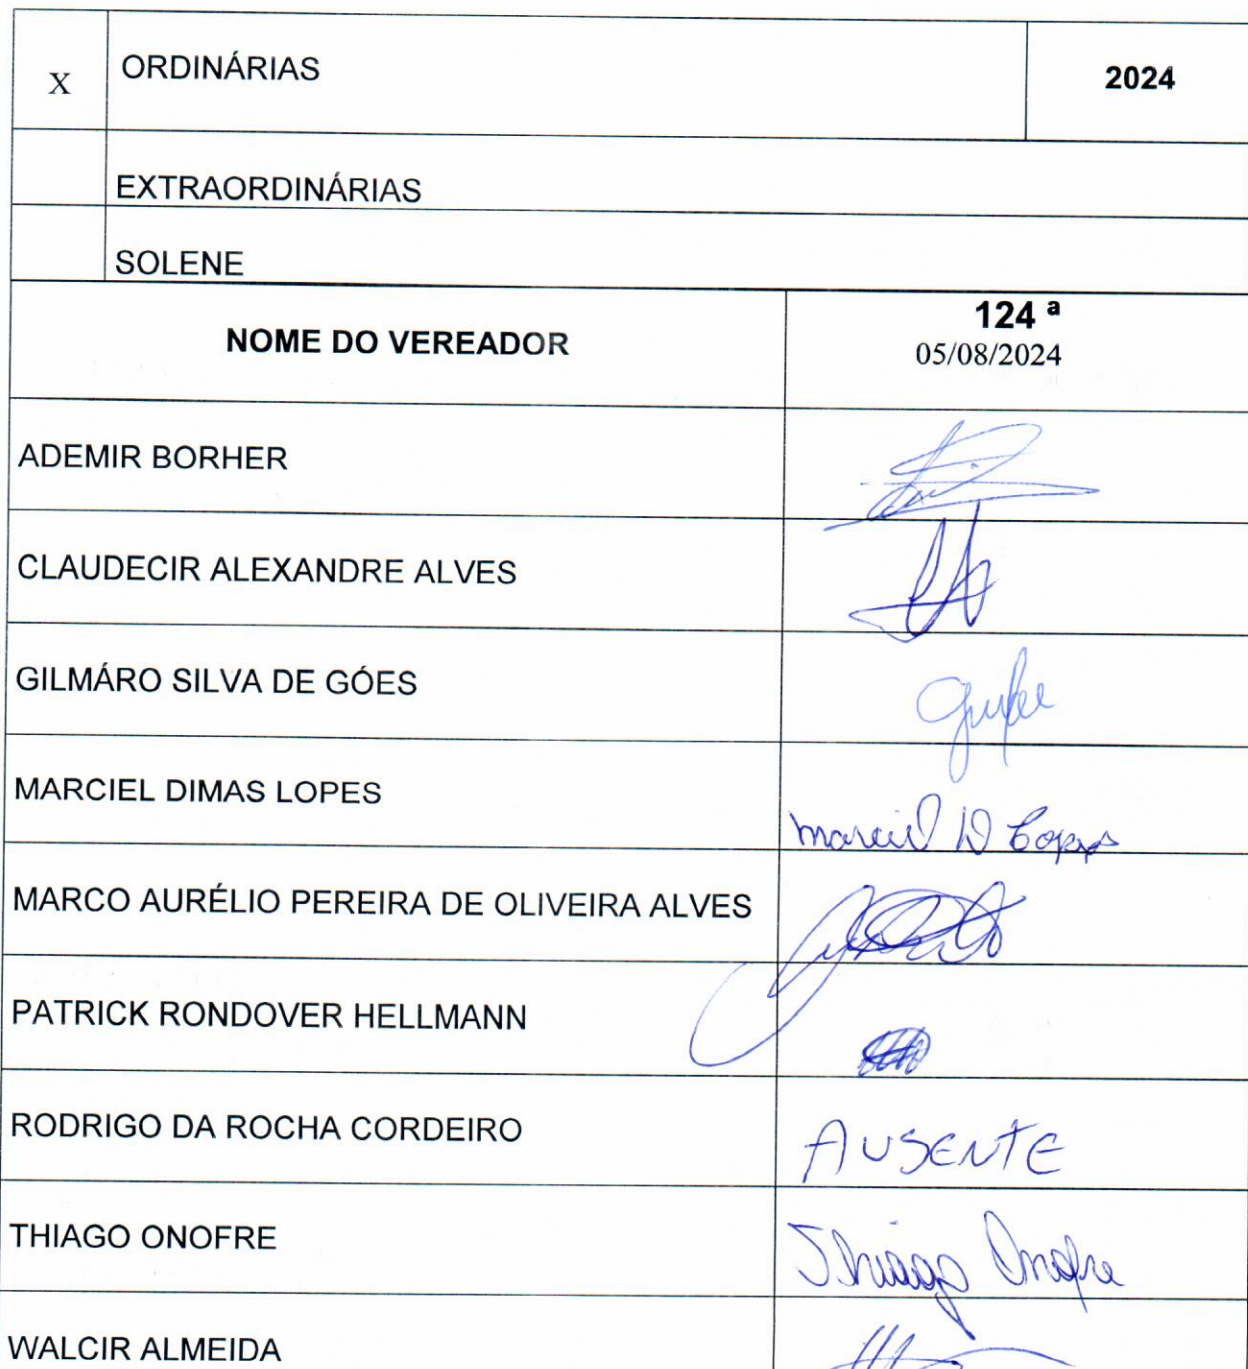 X ORDINÁRIAS 2024
EXTRAORDINÁRIAS
SOLENE
NOME DO VEREADOR 124 ª
05/08/2024
ADEMIR BORHER
CLAUDECIR ALEXANDRE ALVES
GILMÁRO SILVA DE GÓES
MARCIEL DIMAS LOPES Marciel D Lopes
MARCO AURÉLIO PEREIRA DE OLIVEIRA ALVES
PATRICK RONDOVER HELLMANN
RODRIGO DA ROCHA CORDEIRO AUSENTE
THIAGO ONOFRE Thiago Onofre
WALCIR ALMEIDA